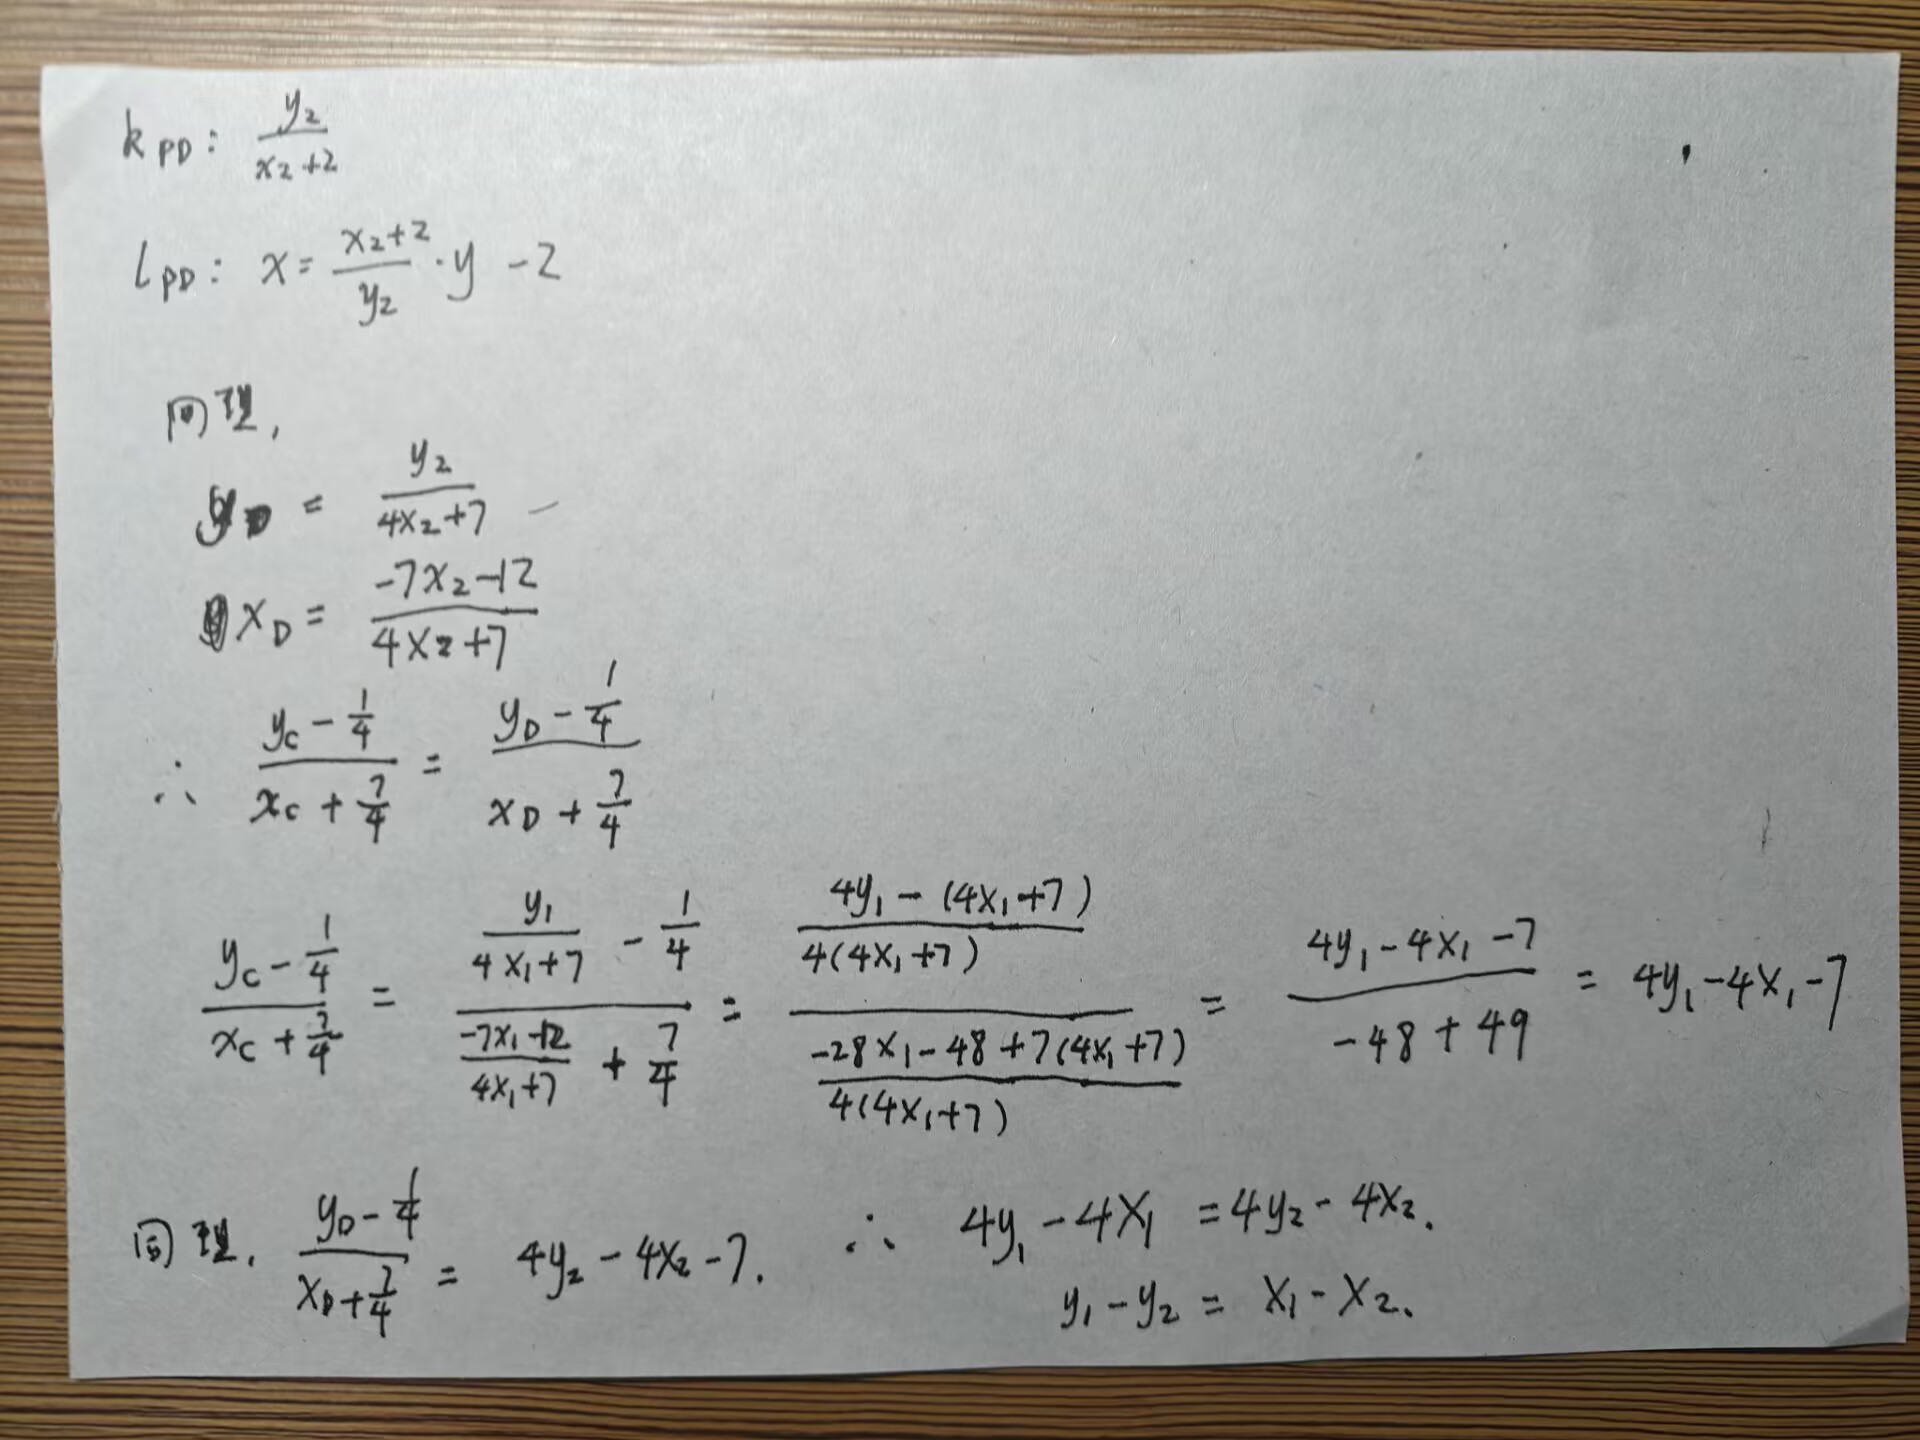 k_PD: y₂/(x₂+2)
l_PD: x = (x₂+2)/y₂ · y - 2
同理,
y_D = y₂/(4x₂+7)
x_D = (-7x₂-12)/(4x₂+7)
∴ (y_C - 1/4)/(x_C + 7/4) = (y_D - 1/4)/(x_D + 7/4)
(y_C - 1/4)/(x_C + 7/4) = (y₁/(4x₁+7) - 1/4)/((-7x₁-12)/(4x₁+7) + 7/4) = ((4y₁-(4x₁+7))/(4(4x₁+7)))/((-28x₁-48+7(4x₁+7))/(4(4x₁+7))) = (4y₁-4x₁-7)/(-48+49) = 4y₁-4x₁-7
同理, (y_D - 1/4)/(x_D + 7/4) = 4y₂-4x₂-7. ∴ 4y₁-4x₁ = 4y₂-4x₂.
y₁-y₂ = x₁-x₂.